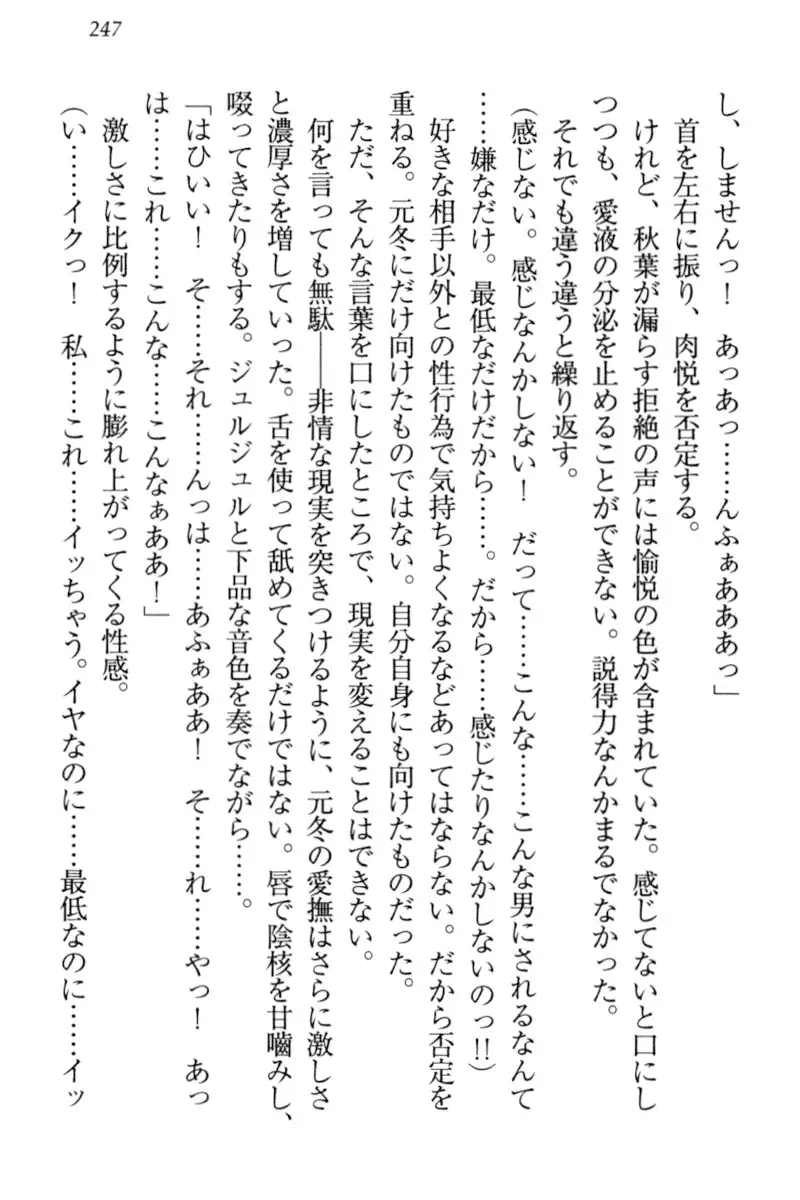 247
し、しませんっ！　あっあっ……んふぁあああっ」
首を左右に振り、肉悦を否定する。
けれど、秋葉が漏らす拒絶の声には愉悦の色が含まれていた。感じてないと口にし
つつも、愛液の分泌を止めることができない。説得力なんかまるでなかった。
それでも違う違うと繰り返す。
（感じない。感じなんかしない！　だって……こんな……こんな男にされるなんて
……嫌なだけ。最低なだけだから……。だから……感じたりなんかしないのっ!!）
好きな相手以外との性行為で気持ちよくなるなどあってはならない。だから否定を
重ねる。元冬にだけ向けたものではない。自分自身にも向けたものだった。
ただ、そんな言葉を口にしたところで、現実を変えることはできない。
何を言っても無駄――非情な現実を突きつけるように、元冬の愛撫はさらに激しさ
と濃厚さを増していった。舌を使って舐めてくるだけではない。唇で陰核を甘嚙みし、
啜ってきたりもする。ジュルジュルと下品な音色を奏でながら……。
「はひいい！　そ……それ……んっは……あふぁああ！　そ……れ……やっ！　あっ
は……これ……こんな……こんなぁああ！」
激しさに比例するように膨れ上がってくる性感。
（い……イクっ！　私……これ……イッちゃう。イヤなのに……最低なのに……イッ